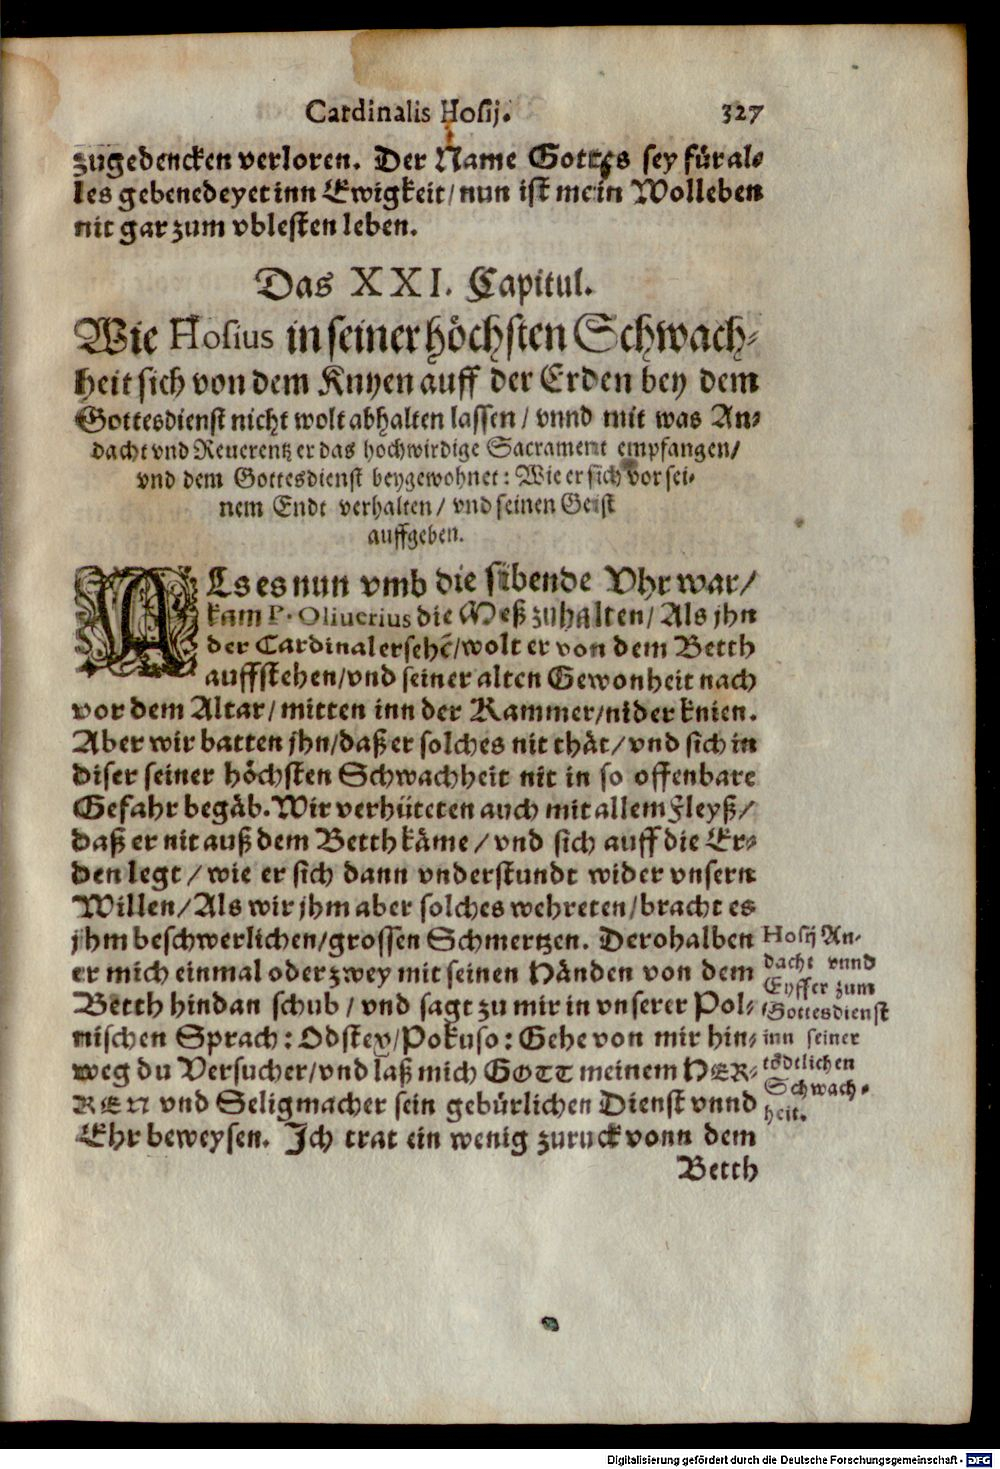 Cardinalis Hosij. 327
zugedencken verloren. Der Name Gottes sey für al-
les gebenedeyet inn Ewigkeit/ nun ist mein Wolleben
nit gar zum vblesten leben.
Das XXI. Capitul.
Wie Hosius in seiner höchsten Schwach-
heit sich von dem Knyen auff der Erden bey dem
Gottesdienst nicht wolt abhalten lassen/ vnnd mit was An-
dacht vnd Reuerentz er das hochwirdige Sacrament empfangen/
vnd dem Gottesdienst beygewohnet: Wie er sich vor sei-
nem Endt verhalten/ vnd seinen Geist
auffgeben.
ALs es nun vmb die sibende Vhr war/
kam P. Oliuerius die Meß zuhalten/ Als jhn
der Cardinal ersehē/ wolt er von dem Betth
auffstehen/ vnd seiner alten Gewonheit nach
vor dem Altar/ mitten inn der Kammer/ nider knien.
Aber wir batten jhn/ daß er solches nit thät/ vnd sich in
diser seiner höchsten Schwachheit nit in so offenbare
Gefahr begäb. Wir verhüteten auch mit allem Fleyß/
daß er nit auß dem Betth käme/ vnd sich auff die Er-
den legt/ wie er sich dann vnderstundt wider vnsern
Willen/ Als wir jhm aber solches wehreten/ bracht es
jhm beschwerlichen/ grossen Schmertzen. Derohalben
er mich einmal oder zwey mit seinen Händen von dem
Betth hindan schub/ vnd sagt zu mir in vnserer Pol-
nischen Sprach: Odstey/ Pokuso: Gehe von mir hin-
weg du Versucher/ vnd laß mich GOTT meinem HER-
REN vnd Seligmacher sein gebürlichen Dienst vnnd
Ehr beweysen. Ich trat ein wenig zuruck vonn dem
Betth
Hosij An-
dacht vnnd
Eyffer zum
Gottesdienst
inn seiner
tödtlichen
Schwach-
heit.
Digitalisierung gefördert durch die Deutsche Forschungsgemeinschaft - DFG